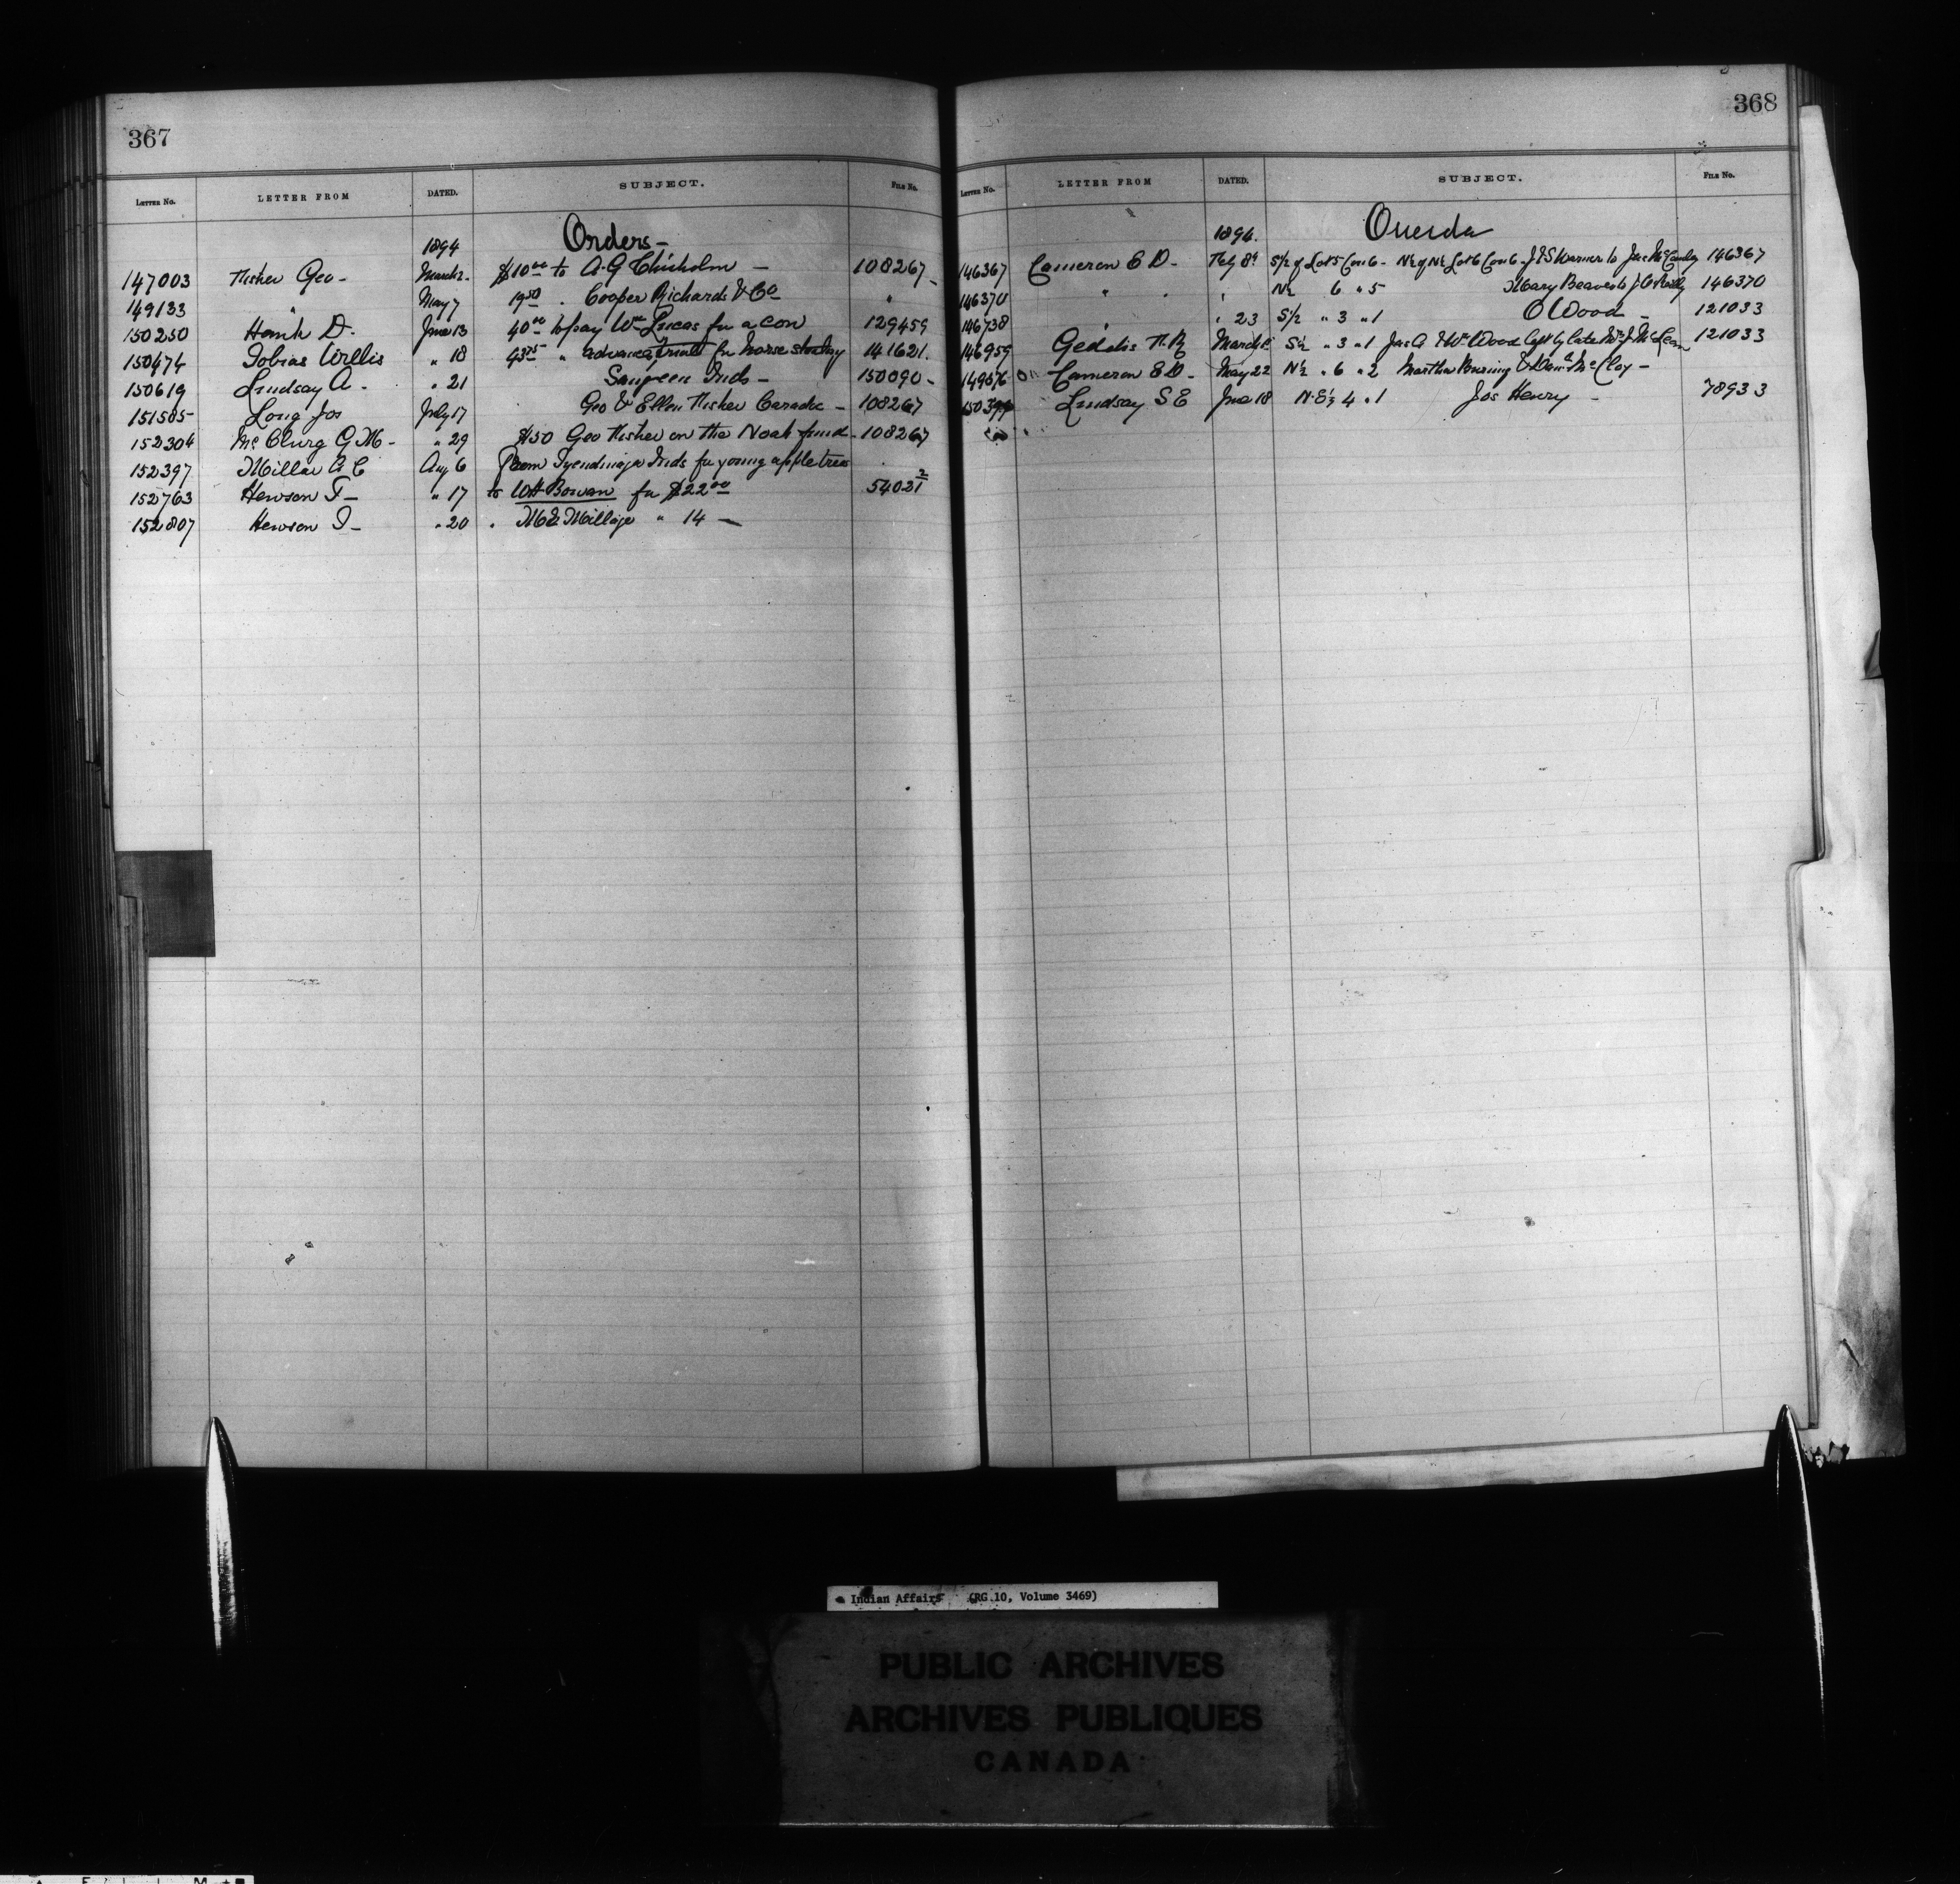 367
LETTER NO. LETTER FROM DATED. SUBJECT. FILE NO.
1894 Orders -
147003 Fisher Geo - March 2 - $10 00 to A. G Chisholm - 108267 -
149133 " May 7 19 50 . Cooper Richards & Co "
150250 D. June 13 40 00 to pay Wm Lucas for a cow 129459
150474 Tobias Willis " 18 43 75 " for horse 141621.
150619 Lindsay A - " 21 Saugeen Inds - 150090 -
151585 Long Jos July 17 Geo & Ellen Fisher Caradoc - 108267
152304 McClurg G M - " 29 $50 Geo Fisher on the Noah fund - 108267
152397 Millar A C Aug 6 From Tyendinaga Inds for young apple trees
152763 Hewson T - " 17 to WH Bowan for $22 00 54021 2
152807 Hewson T - " 20 . 14 -
368
LETTER NO. LETTER FROM DATED. SUBJECT. FILE NO.
1894. Oneida
146367 Cameron E D - Feby 8 S 1/2 of Lot 5 Con 6 - N 1/2 of N 1/2 Lot 6 Con 6 - J S Warner to Jas 146367
146370 " . , N 1/2 6 " 5 Mary Beaver to 146370
146738 , 23 S 1/2 " 3 " 1 O Wood - 121033
146959 Geddis March S 1/2 " 3 " 1 Jas A & Wm Wood left by late Wm J McLean 121033
Cameron E D - May 22 N 1/2 " 6 " 2 Martha & McCloy -
Lindsay S E June 18 N. E 1/2 4 " 1 Jos Henry - 78933
Indian Affairs (RG 10, Volume 3469)
PUBLIC ARCHIVES
ARCHIVES PUBLIQUES
CANADA